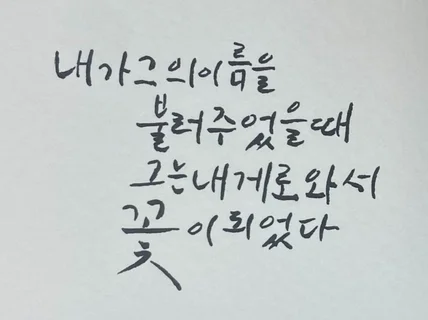 내가 그의 이름을
불러주었을 때
그는 내게로 와서
꽃이 되었다